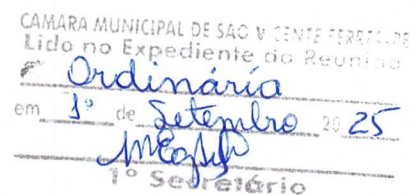 CAMARA MUNICIPAL DE SAO VICENTE FERRER-PE
Lido no Expediente da Reunião
Ordinária
em 1º de Setembro 2025
1º Secretário